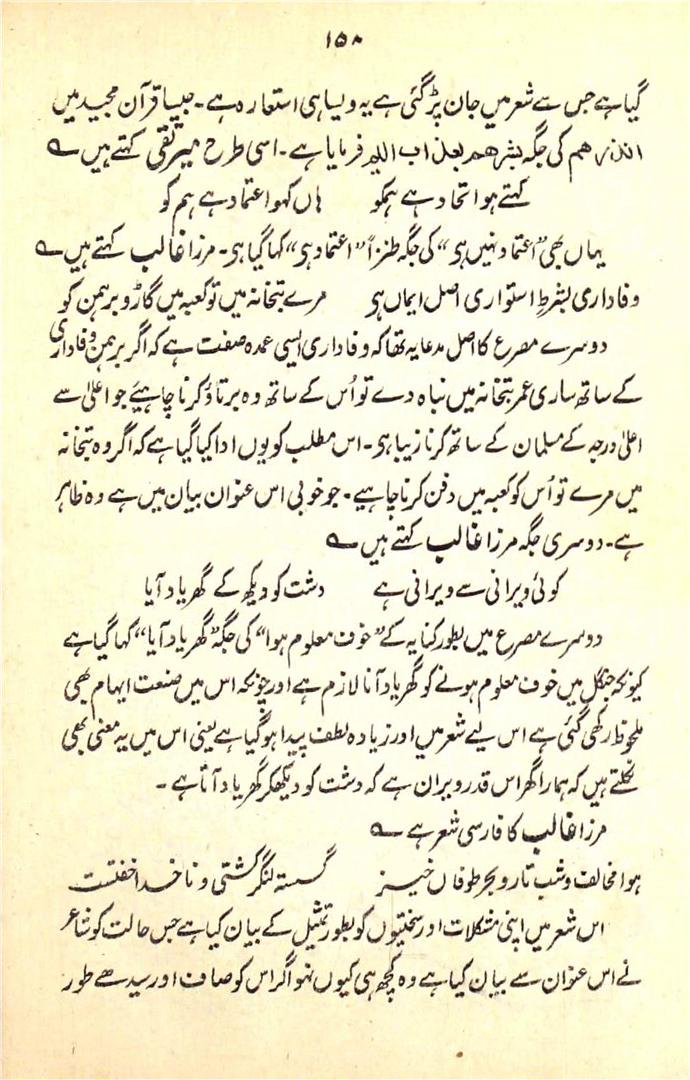 ۱۵۸
گیا ہے جس سے شعر میں جان پڑ گئی ہے یہ ویسا ہی استعارہ ہے۔ جیسا قرآن مجید میں
انذرھم کی جگہ بشرھم بعذاب الیم فرمایا ہے۔ اسی طرح میر تقی کہتے ہیں ؎
کہتے ہو اتحاد ہے ہمکو ہاں کہو اعتماد ہے ہم کو
یہاں بھی "اعتماد نہیں ہی" کی جگہ طنزاً "اعتماد ہی" کہا گیا ہی۔ مرزا غالب کہتے ہیں ؎
وفاداری بشرطِ استواری اصل ایماں ہی مرے بتخانہ میں تو کعبہ میں گاڑو برہمن کو
دوسرے مصرع کا اصل مدعا یہ تھا کہ وفاداری ایسی عمدہ صفت ہے کہ اگر برہمن وفاداری
کے ساتھ ساری عمر بتخانہ میں نباہ دے تو اُس کے ساتھ وہ برتاؤ کرنا چاہیئے جو اعلیٰ سے
اعلیٰ درجہ کے مسلمان کے ساتھ کرنا زیبا ہی۔ اس مطلب کو یوں ادا کیا گیا ہے کہ اگر وہ بتخانہ
میں مرے تو اُس کو کعبہ میں دفن کرنا چاہیے۔ جو خوبی اس عنوان بیان میں ہے وہ ظاہر
ہے۔ دوسری جگہ مرزا غالب کہتے ہیں ؎
کوئی ویرانی سے ویرانی ہے دشت کو دیکھ کے گھر یاد آیا
دوسرے مصرع میں بطور کنایہ کے "خوف معلوم ہوا" کی جگہ "گھر یاد آیا" کہا گیا ہے
کیونکہ جنگل میں خوف معلوم ہونے کو گھر یاد آنا لازم ہے اور چونکہ اس میں صنعت ایہام بھی
ملحوظ رکھی گئی ہے اس لیے شعر میں اور زیادہ لطف پیدا ہو گیا ہے یعنی اس میں یہ معنی بھی
نکلتے ہیں کہ ہمارا گھر اس قدر ویران ہے کہ دشت کو دیکھکر گھر یاد آتا ہے۔
مرزا غالب کا فارسی شعر ہے ؎
ہوا مخالف و شب تار و بحر طوفاں خیز گسستہ لنگر کشتی و ناخدا خفتست
اس شعر میں اپنی مشکلات اور سختیوں کو بطور تمثیل کے بیان کیا ہے جس حالت کو شاعر
نے اس عنوان سے بیان کیا ہے وہ کچھ ہی کیوں نہو اگر اس کو صاف اور سیدھے طور